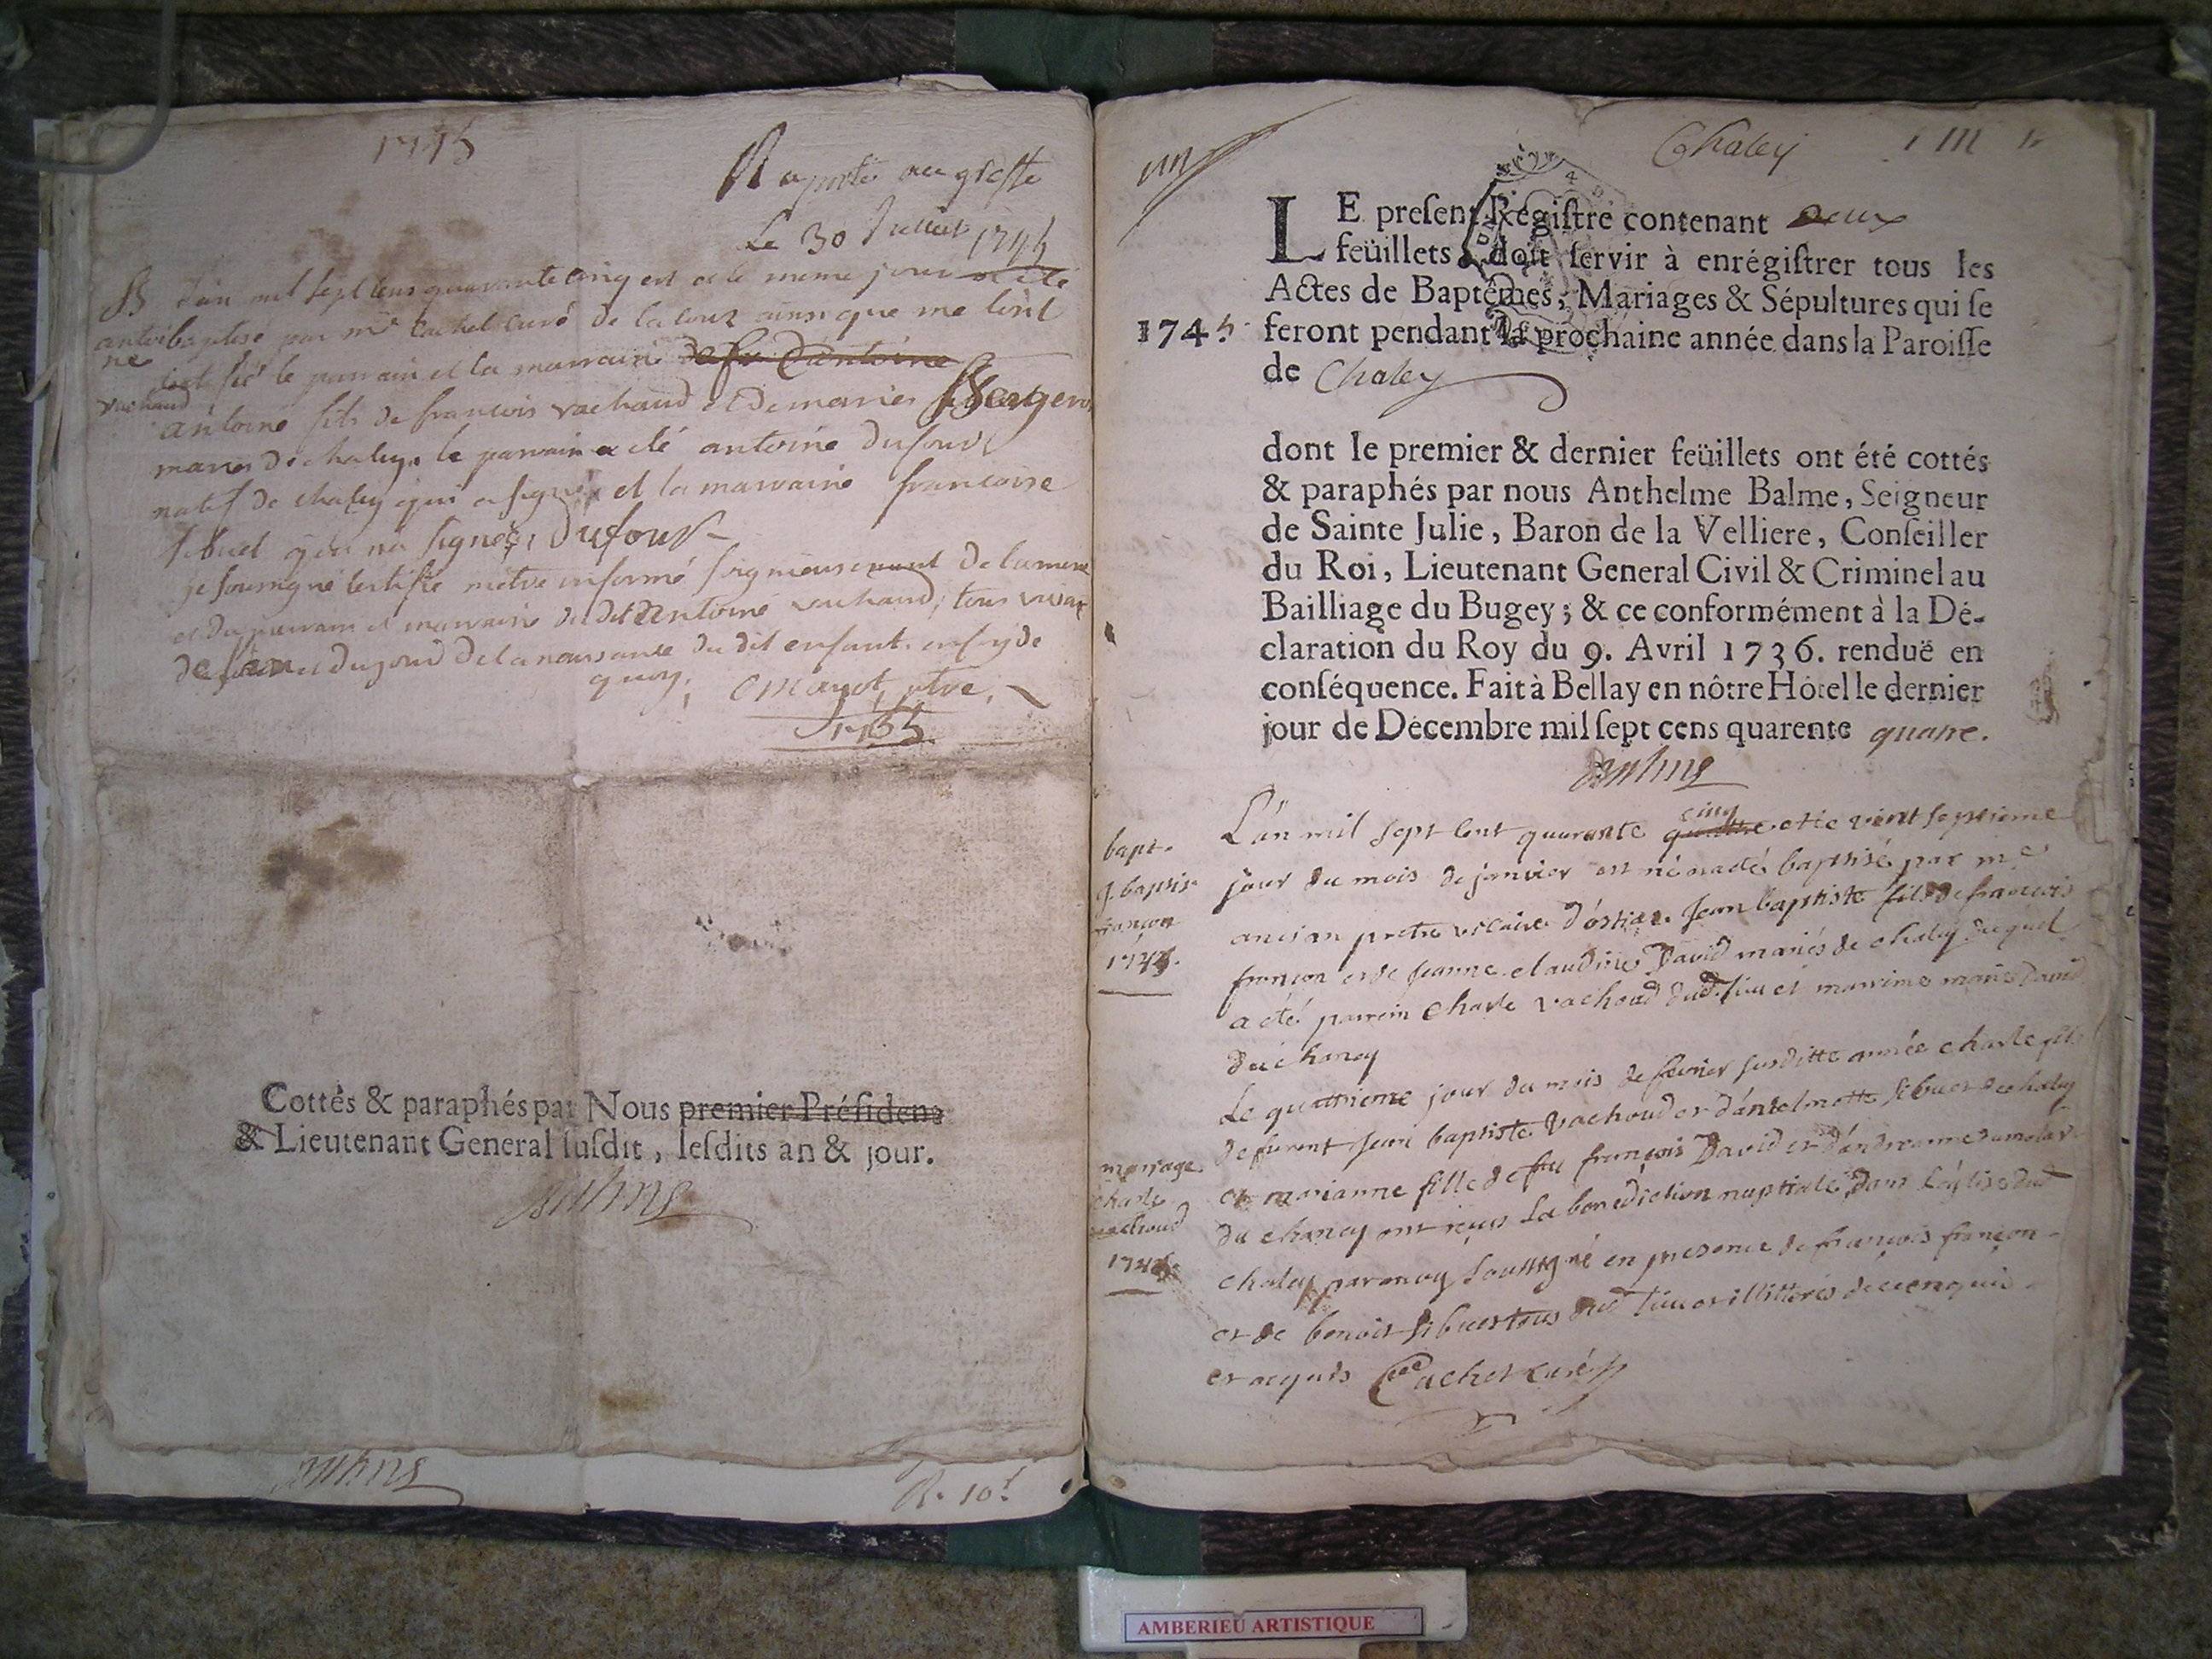 1745
Raporté au greffe
Le 30 Juillet 1745
B L'an mil sept cens quarante cinq et le meme jour a été
antoi baptisé par mr Cachet curé de la cour ainsi que me l'ont
ne
certifié le parrain et la marraine
vachaud
antoine fils de francois vachaud et de marie
mariés de chaley. le parrain a été antoine dufour
natif de chaley qui a signé et la marraine francoise
sibuet qui na signé Dufour
je soussigné certifie metre informé soigneusement de la mere
et du parrain et marraine du dit Antoine vachaud, tous
de l'an et du jour de la naissance du dit enfant. en foy de
quoy,
1745
Cottés & paraphés par Nous premier Présidens
& Lieutenant General susdit, lesdits an & jour.
R. 10
Chaley
LE present Régistre contenant Deux
feüillets doit servir à enrégistrer tous les
Actes de Baptêmes, Mariages & Sépultures qui se
1745. feront pendant la prochaine année dans la Paroisse
de Chaley
dont le premier & dernier feüillets ont été cottés
& paraphés par nous Anthelme Balme, Seigneur
de Sainte Julie, Baron de la Velliere, Conseiller
du Roi, Lieutenant General Civil & Criminel au
Bailliage du Bugey; & ce conformément à la Dé-
claration du Roy du 9. Avril 1736. renduë en
conséquence. Fait à Bellay en nôtre Hôtel le dernier
jour de Décembre mil sept cens quarente quatre.
bapt.
J. baptis.
françon
1745.
L'an mil sept cent quarante quattre cinq et le vint septieme
jour du mois de janvier est né et a été baptisé par me
ancian pretre vicaire d'ostiaz. Jean baptiste fils de francois
françon et de jeanne claudine David mariés de chaley duquel
a été parrein Charle vachoud dud. lieu et marrine marie David
de chanay
mariage
charle
vachoud
1745.
Le quattrieme jour du mois de fevrier susditte année charle fils
de furent jean baptiste vachoud et d'antelmette sibuet de chaley
et marianne fille de feu françois David et d'andreanne
du chanay ont reçus La benediction nuptiale dans L'eglise dud
chaley par moy soussigné en presence de françois françon
et de benoit sibuet tous dud. lieu et illitterés de ce enquis
et requis Cachet curé
AMBERIEU ARTISTIQUE